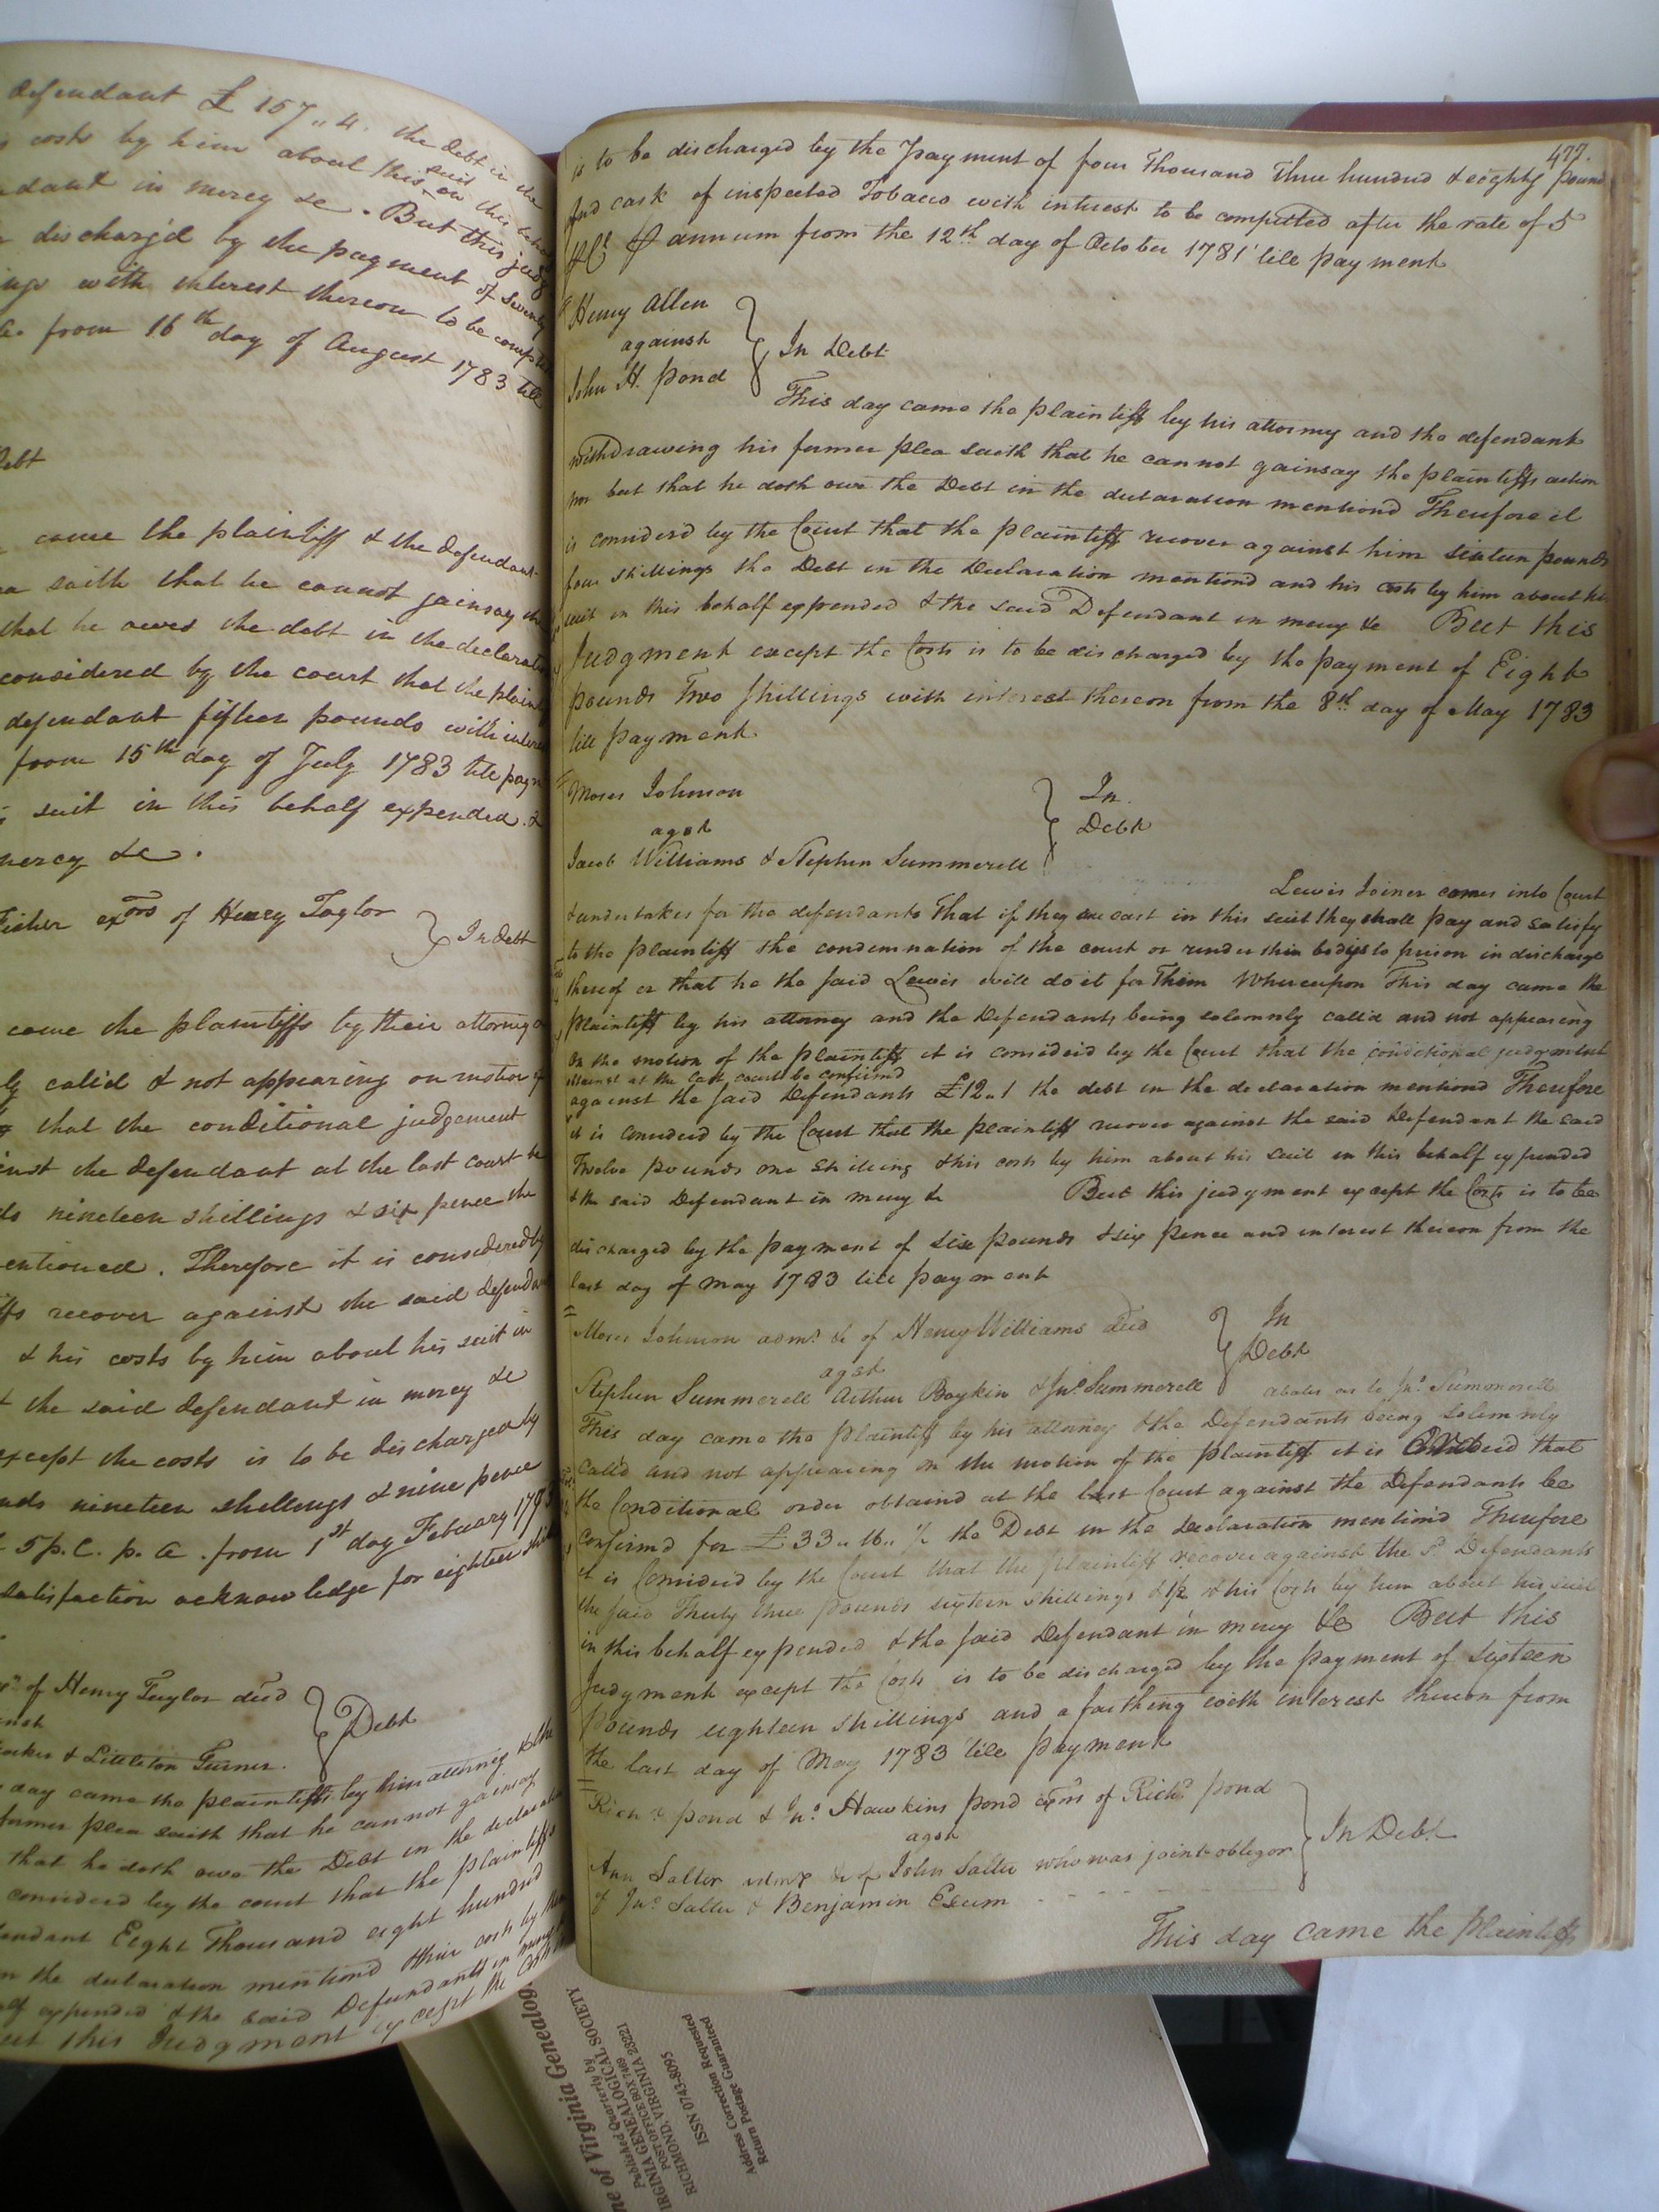 defendant £ 157,, 4. the debt in the
costs by him about this suit on this behalf
dant in mercy &c. But this judg
discharg'd by the payment of Seventy
ings with interest thereon to be comput
from 16th day of August 1783 till
Debt
came the plaintiff & the defendant
saith that he cannot gainsay the
that he owes the debt in the declarat
considered by the court that the plaint
defendant fifteen pounds with intere
from 15th day of July 1783 till paym
suit in this behalf expended. &
mercy &c.
Fisher exors of Henry Taylor
In Debt
came the plaintiffs by their attorney
ly call'd & not appearing on motion of
that the conditional judgement
inst the defendant at the last court be
nineteen shillings & six pence the
entioned. Therefore it is considered by
iffs recover against the said defenda
& his costs by him about his suit in
& the said defendant in mercy &c
except the costs is to be discharged by
nds nineteen shillings & nine pence
5 p. C. p. a. from 1st day February 178
satisfaction acknowledge for eighteen shi
of Henry Taylor dec'd
Debt
& Littleton Turner.
day came the plaintiffs by him attorney & the
former plea saith that he cannot gainsay
that he doth owe the Debt in the declarat
considerd by the court that the plaintiffs
endant Eight Thousand eight hundred
in the declaration mentiond their costs by them
expended & the said Defendants in mercy
But this Judgment except the Costs
477.
is to be discharged by the Payment of four Thousand Three hundred & eighty pound
And cask of inspected Tobacco with interest to be computed after the rate of 5
PCt P annum from the 12th day of October 1781 till payment
Henry Allen
against
John H. Pond
In Debt
This day came the plaintiff by his attorney and the defendant
withdrawing his former plea saith that he cannot gainsay the plaintiffs action
nor but that he doth owe the Debt in the declaration mentiond Therefore it
is considerd by the Court that the Plaintiff recover against him sixteen pounds
four shillings the Debt in the Declaration mentiond and his costs by him about his
suit in this behalf expended & the said Defendant in mercy &c But this
Judgment except the Costs is to be discharged by the payment of Eight
pounds Two shillings with interest thereon from the 8th day of May 1783
till payment
Moses Johnson
agst
Jacob Williams & Stephen Summerell
In
Debt
Lewis Joiner comes into Court
& undertakes for the defendants That if they are cast in this suit they shall pay and satisfy
to the plaintiff the condemnation of the court or render their bodys to prison in discharge
thereof or that he the said Lewis will do it for Them Whereupon This day came the
Plaintiff by his attorney and the Defendants being solemnly call'd and not appearing
On the motion of the plaintiff it is considerd by the Court that the conditional judgment
at the last court be confirmd
against the said Defendants £12,,1 the debt in the declaration mentiond Therefore
it is considerd by the Court that the plaintiff recover against the said Defendant the said
Twelve pounds one shilling & his costs by him about his suit in this behalf expended
& the said Defendant in mercy &c But this judgment except the Costs is to be
discharged by the payment of six pounds & six pence and interest thereon from the
last day of may 1783 till payment
Moses Johnson admr &c of Henry Williams Decd
agst
Stephen Summerell Arthur Boykin & Jno Summerell
In
Debt
abates as to Jno Summerell
This day came the plaintiff by his attorney & the Defendants being Solemnly
call'd and not appearing on the motion of the plaintiff it is Considerd that
the Conditional order obtaind at the last Court against the Defendants be
confirmd for £33,,16,, ½ the Debt in the declaration mentiond Therefore
it is Considerd by the Court that the plaintiff recover against the sd Defendants
the said Thirty three pounds sixteen shillings & ½ & his Costs by him about his suit
in this behalf expended & the said Defendant in mercy &c But this
Judgment except the Costs is to be discharged by the payment of sixteen
pounds eighteen shillings and a farthing with interest thereon from
the last day of May 1783 till payment
Richd pond & Jno Hawkins pond exors of Richd pond
agst
Ann Salter admx &c of John Salter who was joint obligor
of Jno Salter & Benjamin Exum
In Debt
This day came the Plaintiffs
ne of Virginia Genealogi
Published Quarterly by
IRGINIA GENEALOGICAL SOCIETY
POST OFFICE BOX 7469
RICHMOND, VIRGINIA 23221
ISSN 0743-8095
Address Correction Requested
Return Postage Guaranteed